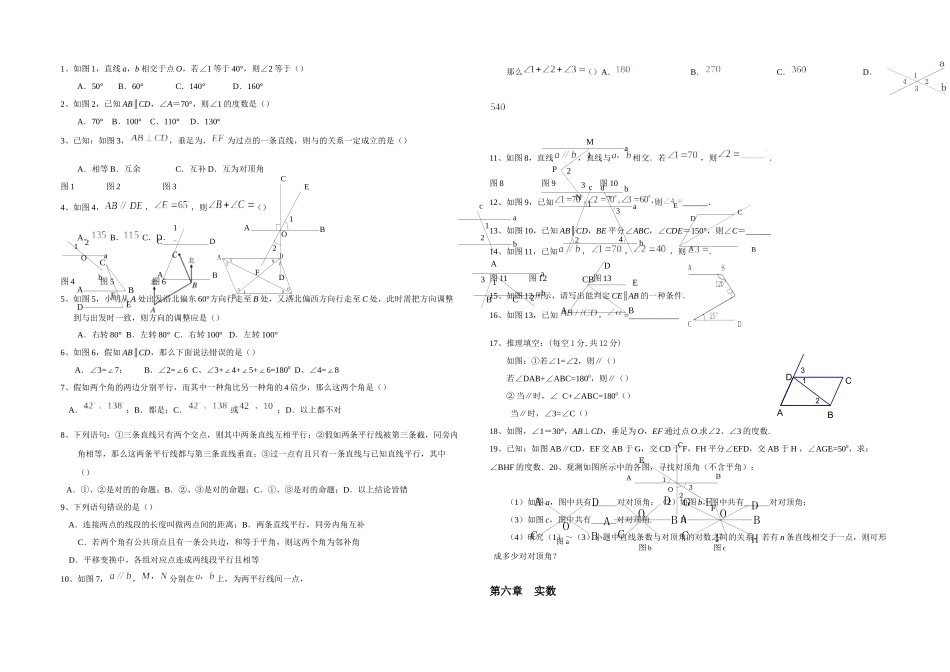 1、如图 1，直线 a，b 相交于点 O，若∠1 等于 40°，则∠2 等于（）
A．50° B．60° C．140° D．160°
2、如图 2，已知 AB∥CD，∠A＝70°，则∠1 的度数是（）
A．70° B．100° C．110° D．130°
3、已知：如图 3，AB⊥CD，垂足为，EF 为过点的一条直线，则与的关系一定成立的是（）
A．相等 B．互余 C．互补 D．互为对顶角
图 1 图 2 图 3
4、如图 4，AB∥DE，∠E=65，则∠B+∠C（）
A．135 B．115 C．D．
图 4 图 5 图 6
5、如图 5，小明从 A 处出发沿北偏东 60°方向行走至 B 处，又沿北偏西方向行走至 C 处，此时需把方向调整
到与出发时一致，则方向的调整应是（）
A．右转 80° B．左转 80° C．右转 100° D．左转 100°
6、如图 6，假如 AB∥CD，那么下面说法错误的是（）
A．∠3=∠7； B．∠2=∠6 C、∠3+∠4+∠5+∠6=180⁰ D、∠4=∠8
7、假如两个角的两边分别平行，而其中一种角比另一种角的 4 倍少，那么这两个角是（）
A．42°、138°；B．都是；C．42°、138°或42°、10；D．以上都不对
8、下列语句：①三条直线只有两个交点，则其中两条直线互相平行；②假如两条平行线被第三条截，同旁内
角相等，那么这两条平行线都与第三条直线垂直；③过一点有且只有一条直线与已知直线平行，其中
（）
A．①、②是对的的命题；B．②、③是对的命题；C．①、③是对的命题；D．以上结论皆错
9、下列语句错误的是（）
A．连接两点的线段的长度叫做两点间的距离；B．两条直线平行，同旁内角互补
C．若两个角有公共顶点且有一条公共边，和等于平角，则这两个角为邻补角
D．平移变换中，各组对应点连成两线段平行且相等
10、如图 7，a∥b，M，N 分别在 a，b 上，为两平行线间一点，
那么∠1+∠2+∠3（）A．180 B．270 C．360 D．
540
11、如图 8，直线 a∥b，直线与 a，b 相交．若∠1=70，则∠2=．
图 8 图 9 图 10
12、如图 9，已知∠1=70°,∠2=70°,∠3=60°,则∠4=______．
13、如图 10，已知 AB∥CD，BE 平分∠ABC，∠CDE＝150°，则∠C＝______
14、如图 11，已知 a∥b，∠1=70，∠2=40，则∠3=．
图 11 图 12 图 13
15、如图 12 所示，请写出能判定 CE∥AB 的一种条件．
16、如图 13，已知 AB//CD，∠α=____________
17、推理填空：(每空 1 分,共 12 分)
如图：①若∠1=∠2，则∥（）
若∠DAB+∠ABC=180⁰，则∥（）
② 当∥时，∠ C+∠ABC=180⁰（）
当∥时，∠3=∠C（）
18、如图，∠1=30°，AB⊥CD，垂足为 O，EF 通过点 O.求∠2、∠3 的度数.
19、已知：如图 AB∥CD，EF 交 AB 于 G，交 CD 于 F，FH 平分∠EFD，交 AB 于 H，∠AGE=50⁰，求：
∠BHF 的度数．20、观测如图所示中的各图，寻找对顶角（不含平角）：
（1）如图 a，图中共有______对对顶角；（2）如图 b，图中共有______对对顶角；
（3）如图 c，图中共有______对对顶角.
图 a 图 b 图 c
（4）研究（1）～（3）小题中直线条数与对顶角的对数之间的关系，若有 n 条直线相交于一点，则可形
成多少对对顶角?
第六章 实数